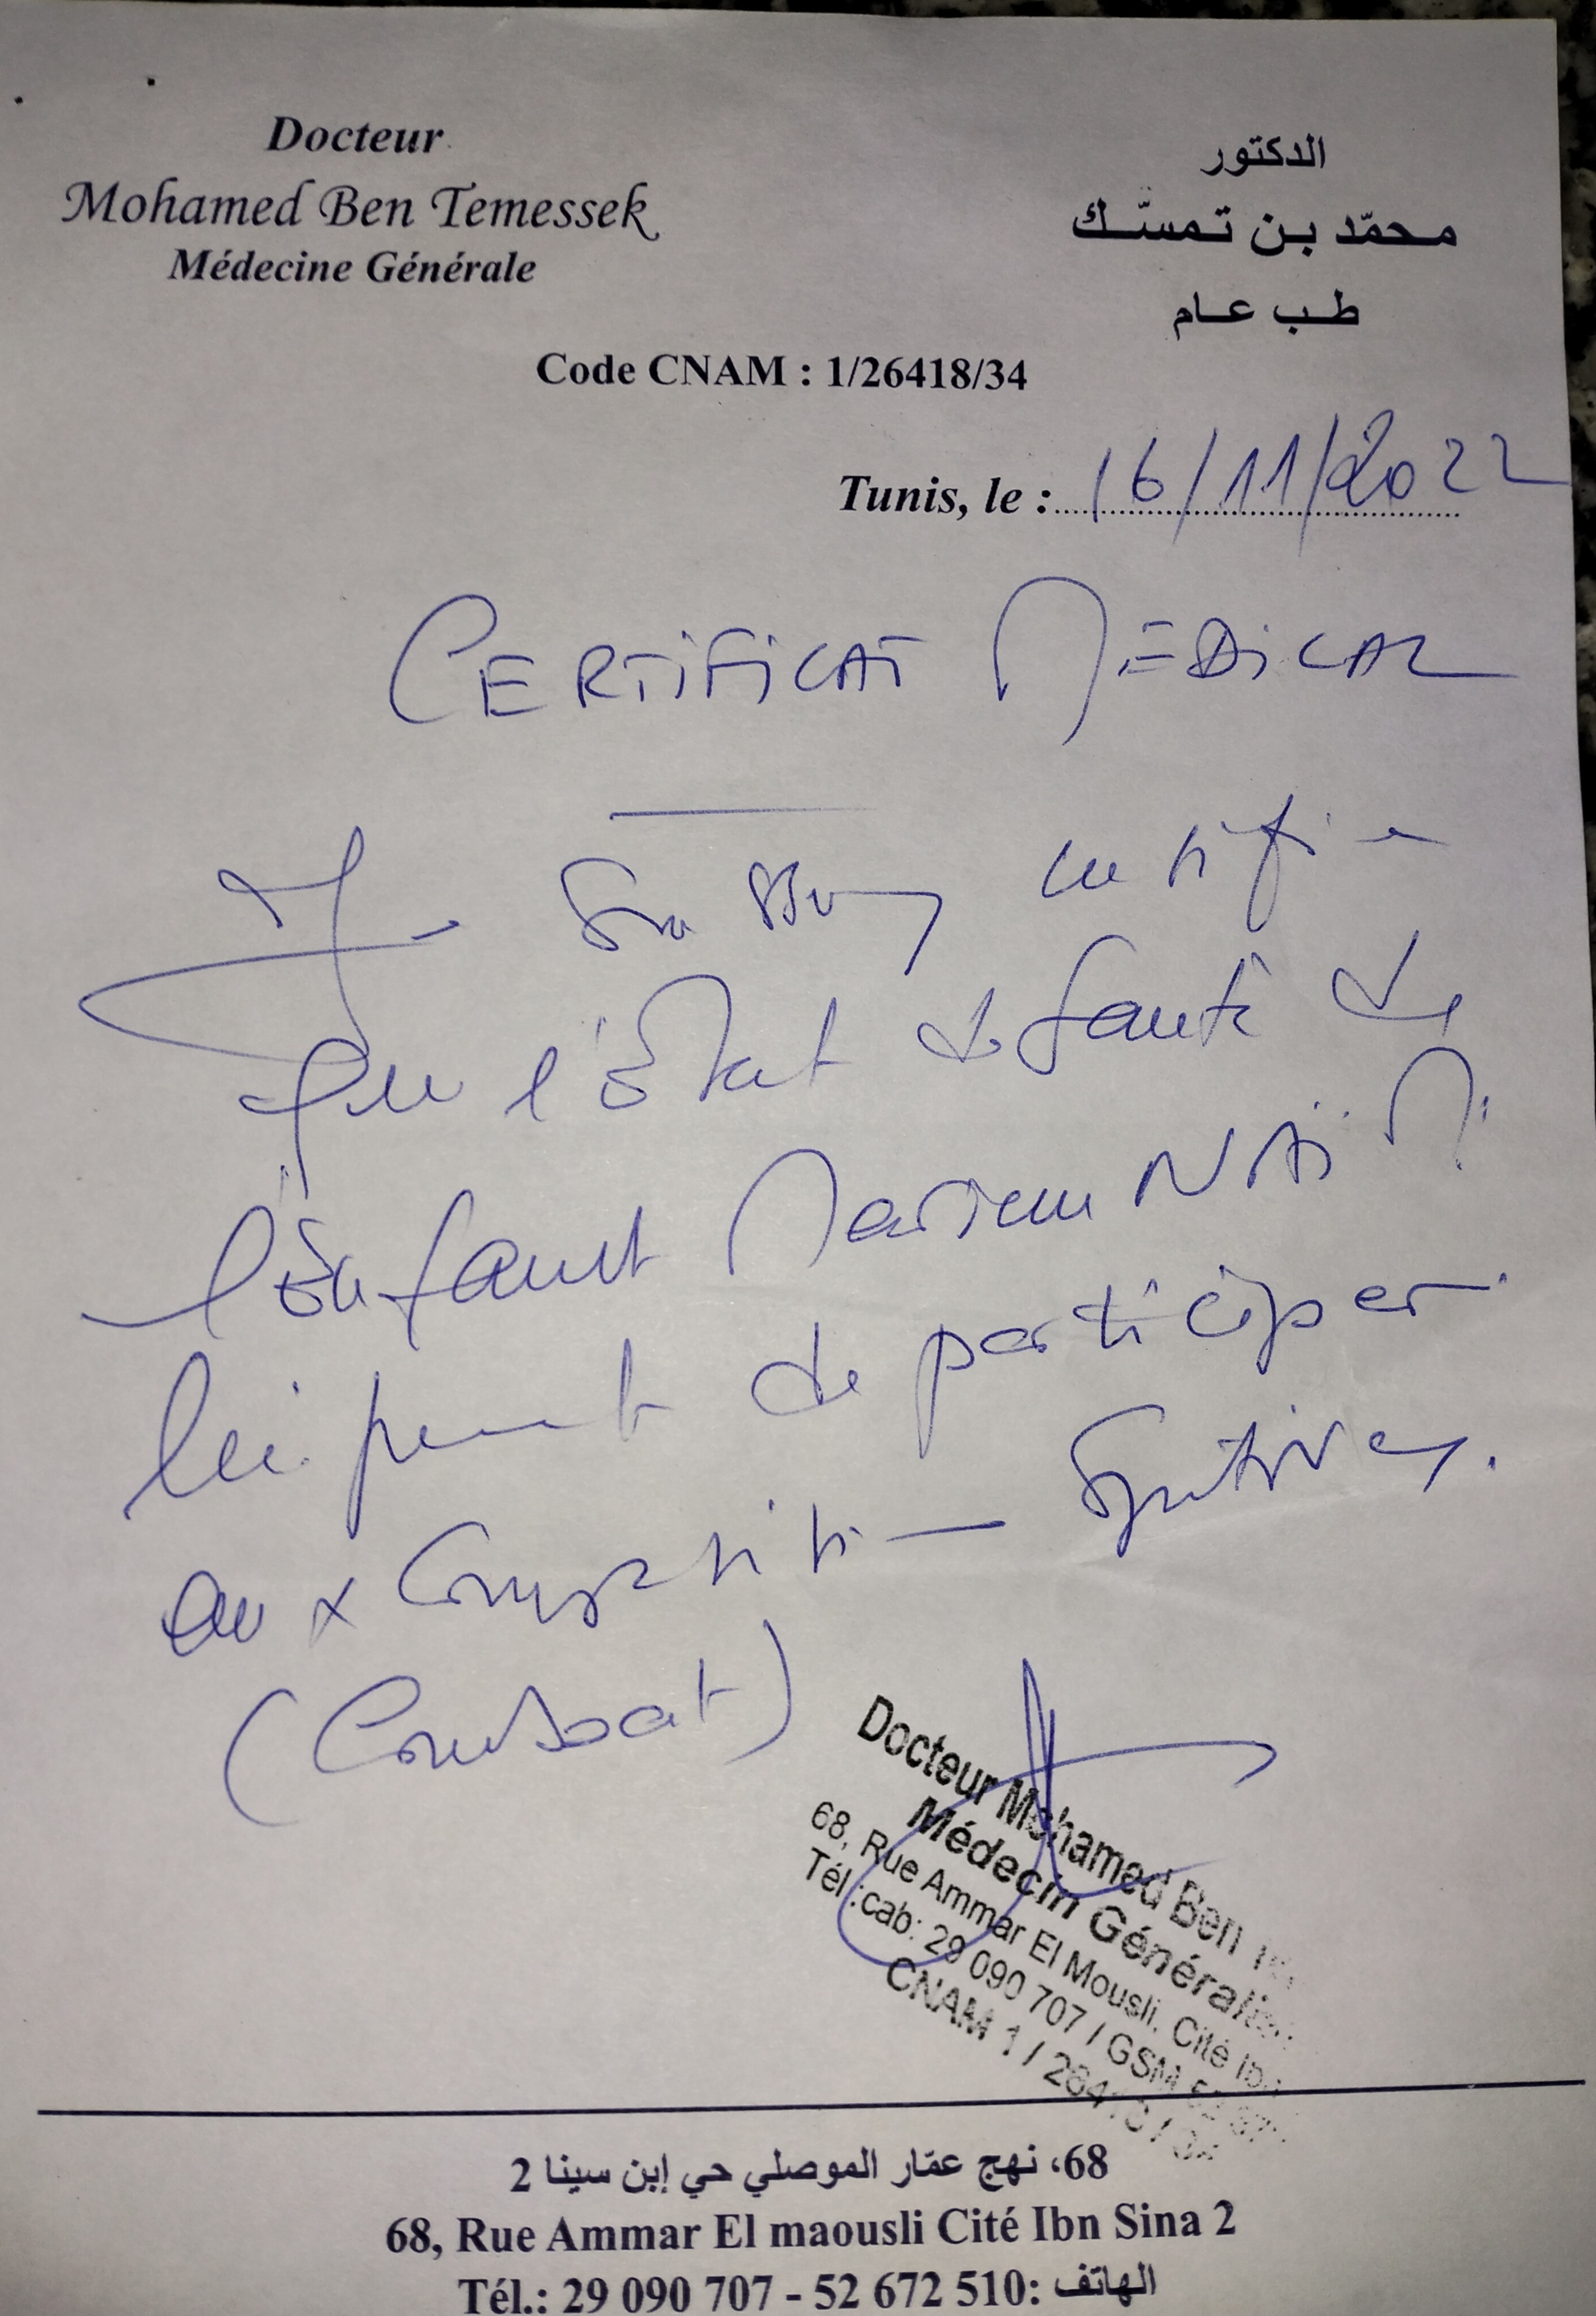 Docteur
Mohamed Ben Temessek
Médecine Générale
الدكتور
محمّد بن تمسّك
طب عام
Code CNAM : 1/26418/34
Tunis, le : 16/11/2022
CERTIFICAT MEDICAL
Je soussigné certifie
que l'état de santé de
l'Enfant Mariem
lui permet de participer
aux compétitions sportives.
(Combat)
Docteur Mohamed Ben
Médecin
68, Rue Ammar El Mousli, Cité
Tél :cab: 29 090 707 / GSM
CNAM 1 /
68، نهج عمّار الموصلي حي إبن سينا 2
68, Rue Ammar El maousli Cité Ibn Sina 2
Tél.: 29 090 707 - 52 672 510: الهاتف